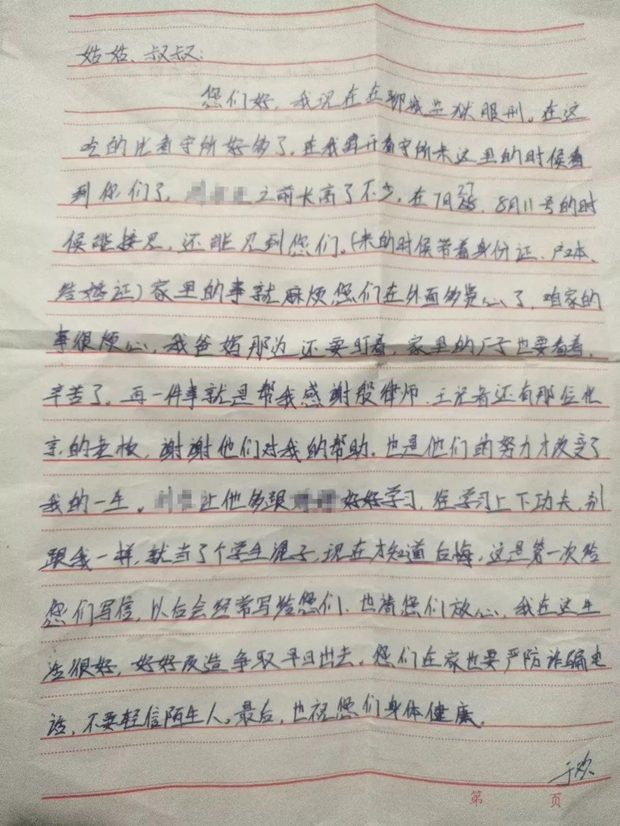 姑姑、叔叔:
您们好,我现在在聊城监狱服刑。在这
吃的比看守所好多了。在我离开看守所来这里的时候看
到你们了。之前长高了不少。在7月27、8月11号的时
候能接见,还能见到您们。(来的时候带着身份证、户口本、
结婚证)家里的事就麻烦您们在外面多费心了,咱家的
事很烦心,我爸妈那边还要盯着,家里的厂子也要看着,
辛苦了。再一件事就是帮我感谢殷律师、王记者还有那位北
京的老板,谢谢他们对我的帮助。也是他们的努力才改变了
我的一生。让他多跟好好学习,在学习上下功夫,别
跟我一样,就当了个学生混子,现在才知道后悔,这是第一次给
您们写信,以后会经常写给您们、也请您们放心,我在这生
活很好,好好改造争取早日出去。您们在家也要严防诈骗电
话,不要轻信陌生人。最后,也祝您们身体健康。
于欢
第 页